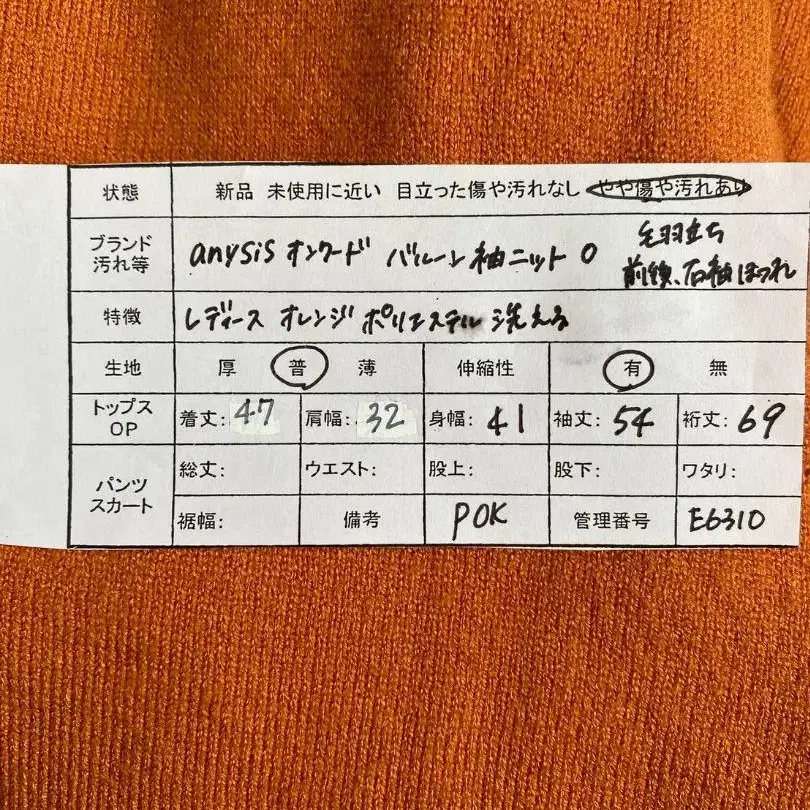 状態 新品 未使用に近い 目立った傷や汚れなし やや傷や汚れあり
ブランド
汚れ等 anysis オンワード バルーン袖ニット 0 毛羽立ち
前後、右袖ほつれ
特徴 レディース オレンジ ポリエステル 洗える
生地 厚 普 薄 伸縮性 有 無
トップス
OP 着丈: 47 肩幅: 32 身幅: 41 袖丈: 54 裄丈: 69
パンツ
スカート 総丈: ウエスト: 股上: 股下: ワタリ:
裾幅: 備考 POK 管理番号 E6310